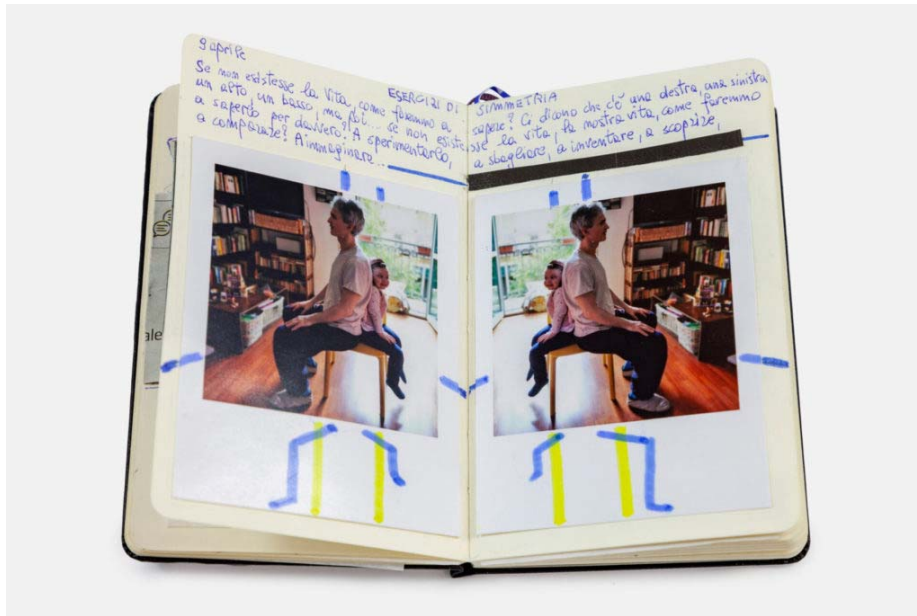 9 aprile
ESERCIZI DI SIMMETRIA
Se non esistesse la vita, come faremmo a sapere? Ci dicono che c'è una destra, una sinistra
un alto, un basso, ma poi... se non esistesse la vita, la nostra vita, come faremmo
a saperlo per davvero? A sperimentarlo, a sbagliare, a inventare, a scoprire,
a comparare? A immaginare...
ale